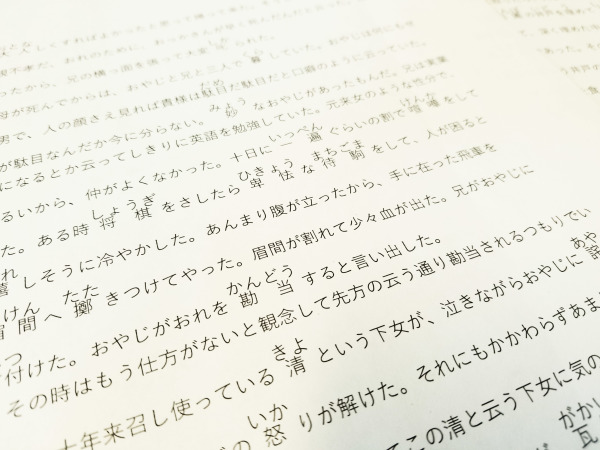 しくすればよかったと思って帰って来た。
親不孝だ、おれのために、おっかさんが早く死んだんだと云った。
ったから、兄の横っ面を張って大変𠮟られた。
母が死んでからは、おやじと兄と三人で暮していた。おやじは何にもせ
男で、人の顔さえ見れば貴様は駄目だ駄目だと口癖のように云っていた。
が駄目なんだか今に分らない。妙なおやじがあったもんだ。兄は実業
になるとか云ってしきりに英語を勉強していた。元来女のような性分で、
るいから、仲がよくなかった。十日に一遍ぐらいの割で喧嘩をして
た。ある時将棋をさしたら卑怯な待駒をして、人が困ると
嬉しそうに冷やかした。あんまり腹が立ったから、手に在った飛車を
眉間へ擲きつけてやった。眉間が割れて少々血が出た。兄がおやじに
付けた。おやじがおれを勘当すると言い出した。
その時はもう仕方がないと観念して先方の云う通り勘当されるつもりでい
十年来召し使っている清という下女が、泣きながらおやじに詫
の怒りが解けた。それにもかかわらずあま
てこの清と云う下女に気の
瓦